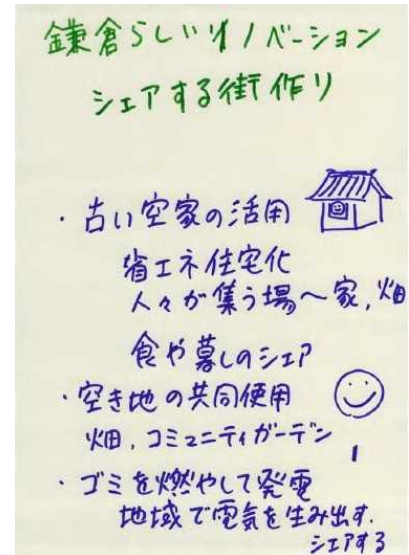 鎌倉らしいイノベーション
シェアする街作り
・古い空家の活用
省エネ住宅化
人々が集う場〜家,畑
食や暮しのシェア
・空き地の共同使用
畑,コミュニティガーデン
・ゴミを燃やして発電
地域で電気を生み出す.
シェアする